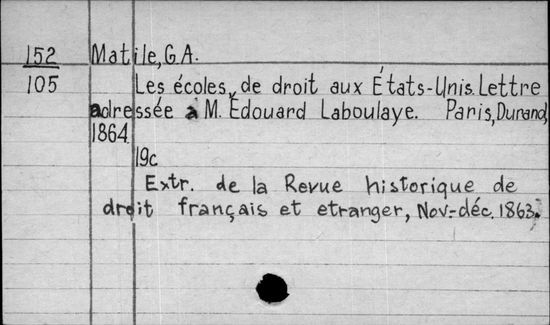 152 Matile, G.A.
105 Les écoles, de droit aux États-Unis. Lettre
adressée à M. Édouard Laboulaye. Paris, Durand,
1864.
19c
Extr. de la Revue historique de
droit français et etranger, Nov-déc. 1863.